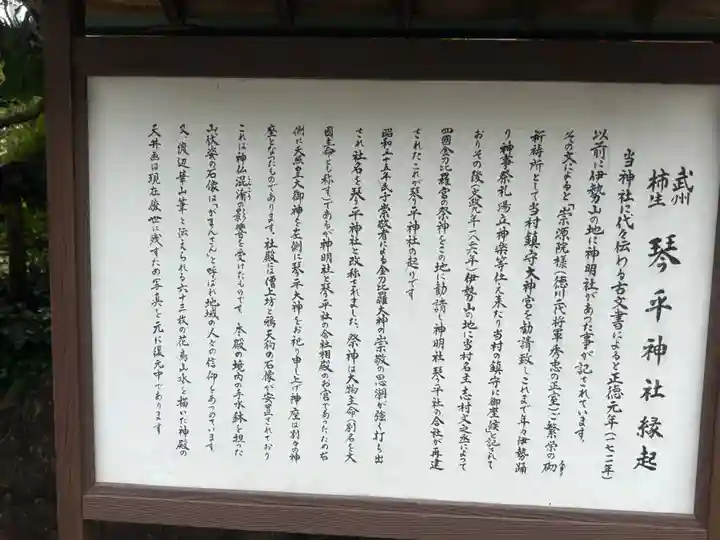 武州
柿生
琴平神社縁起
当神社に代々伝わる古文書によると正徳元年(一七一一年)
以前に伊勢山の地に神明社があった事が記されています。
その文によると「崇源院様(徳川二代将軍秀忠の正室)ご繁栄の砌
祈祷所として当村鎮守大神宮を勧請致しこれまで年々伊勢踊
り神事祭礼湯立神楽等仕え来たり当村の鎮守に御座候」と記されて
おりその後(文政九年(一八二六年)伊勢山の地に当村名主志村文之丞によって
四國金刀比羅宮の祭神をこの地に勧請し神明社琴平社の合社が再建
されたこれが琴平神社の起りです
昭和三十五年氏子崇敬者による金刀比羅大神の崇敬の思潮が強く打ち出
され社名を琴平神社と改称されました。祭神は大物主命(別名を大
國主命とも称す)であるが神明社と琴平社の合社相殿のお宮であったため右
側に天照皇大御神を左側に琴平大神をお祀り申し上げ神座は別々の神
座となったものであります。社殿には僧上坊と鴉天狗の石像が安置されており
これは神仏混淆の影響を受けたものです。本殿の境内の手水鉢を担った
山伏姿の石像は「がまんさん」と呼ばれ地域の人々の信仰をあつめています
又、渡辺崋山筆と伝えられる六十三枚の花鳥山水を描いた神殿の
天井画は現在後世に残すため写真を元に復元中であります